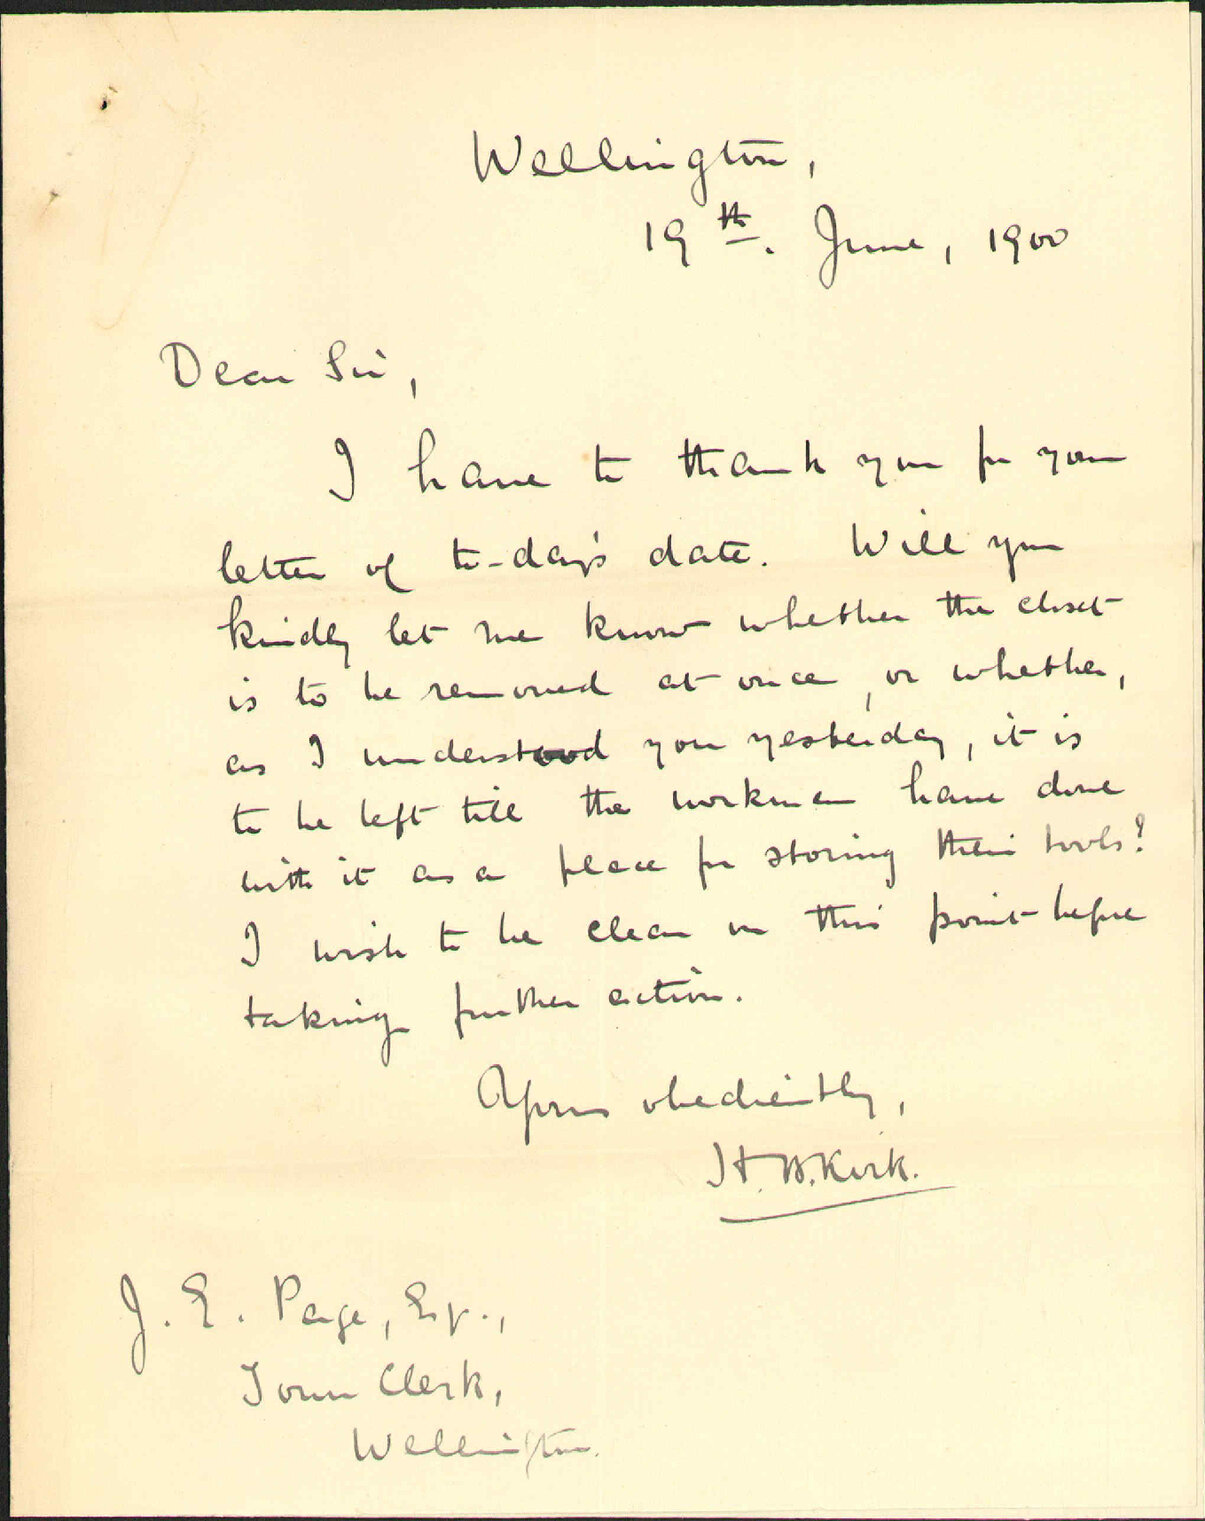 Wellington,
19th. June, 1900
Dear Sir,
I have to thank you for your
letter of to-day's date. Will you
kindly let me know whether the closet
is to be removed at once, or whether,
as I understood you yesterday, it is
to be left till the workmen have done
with it as a place for storing their tools?
I wish to be clear on this point before
taking further action.
Yours obediently,
H. B. Kirk.
J. E. Page, Esq.,
Town Clerk,
Wellington.